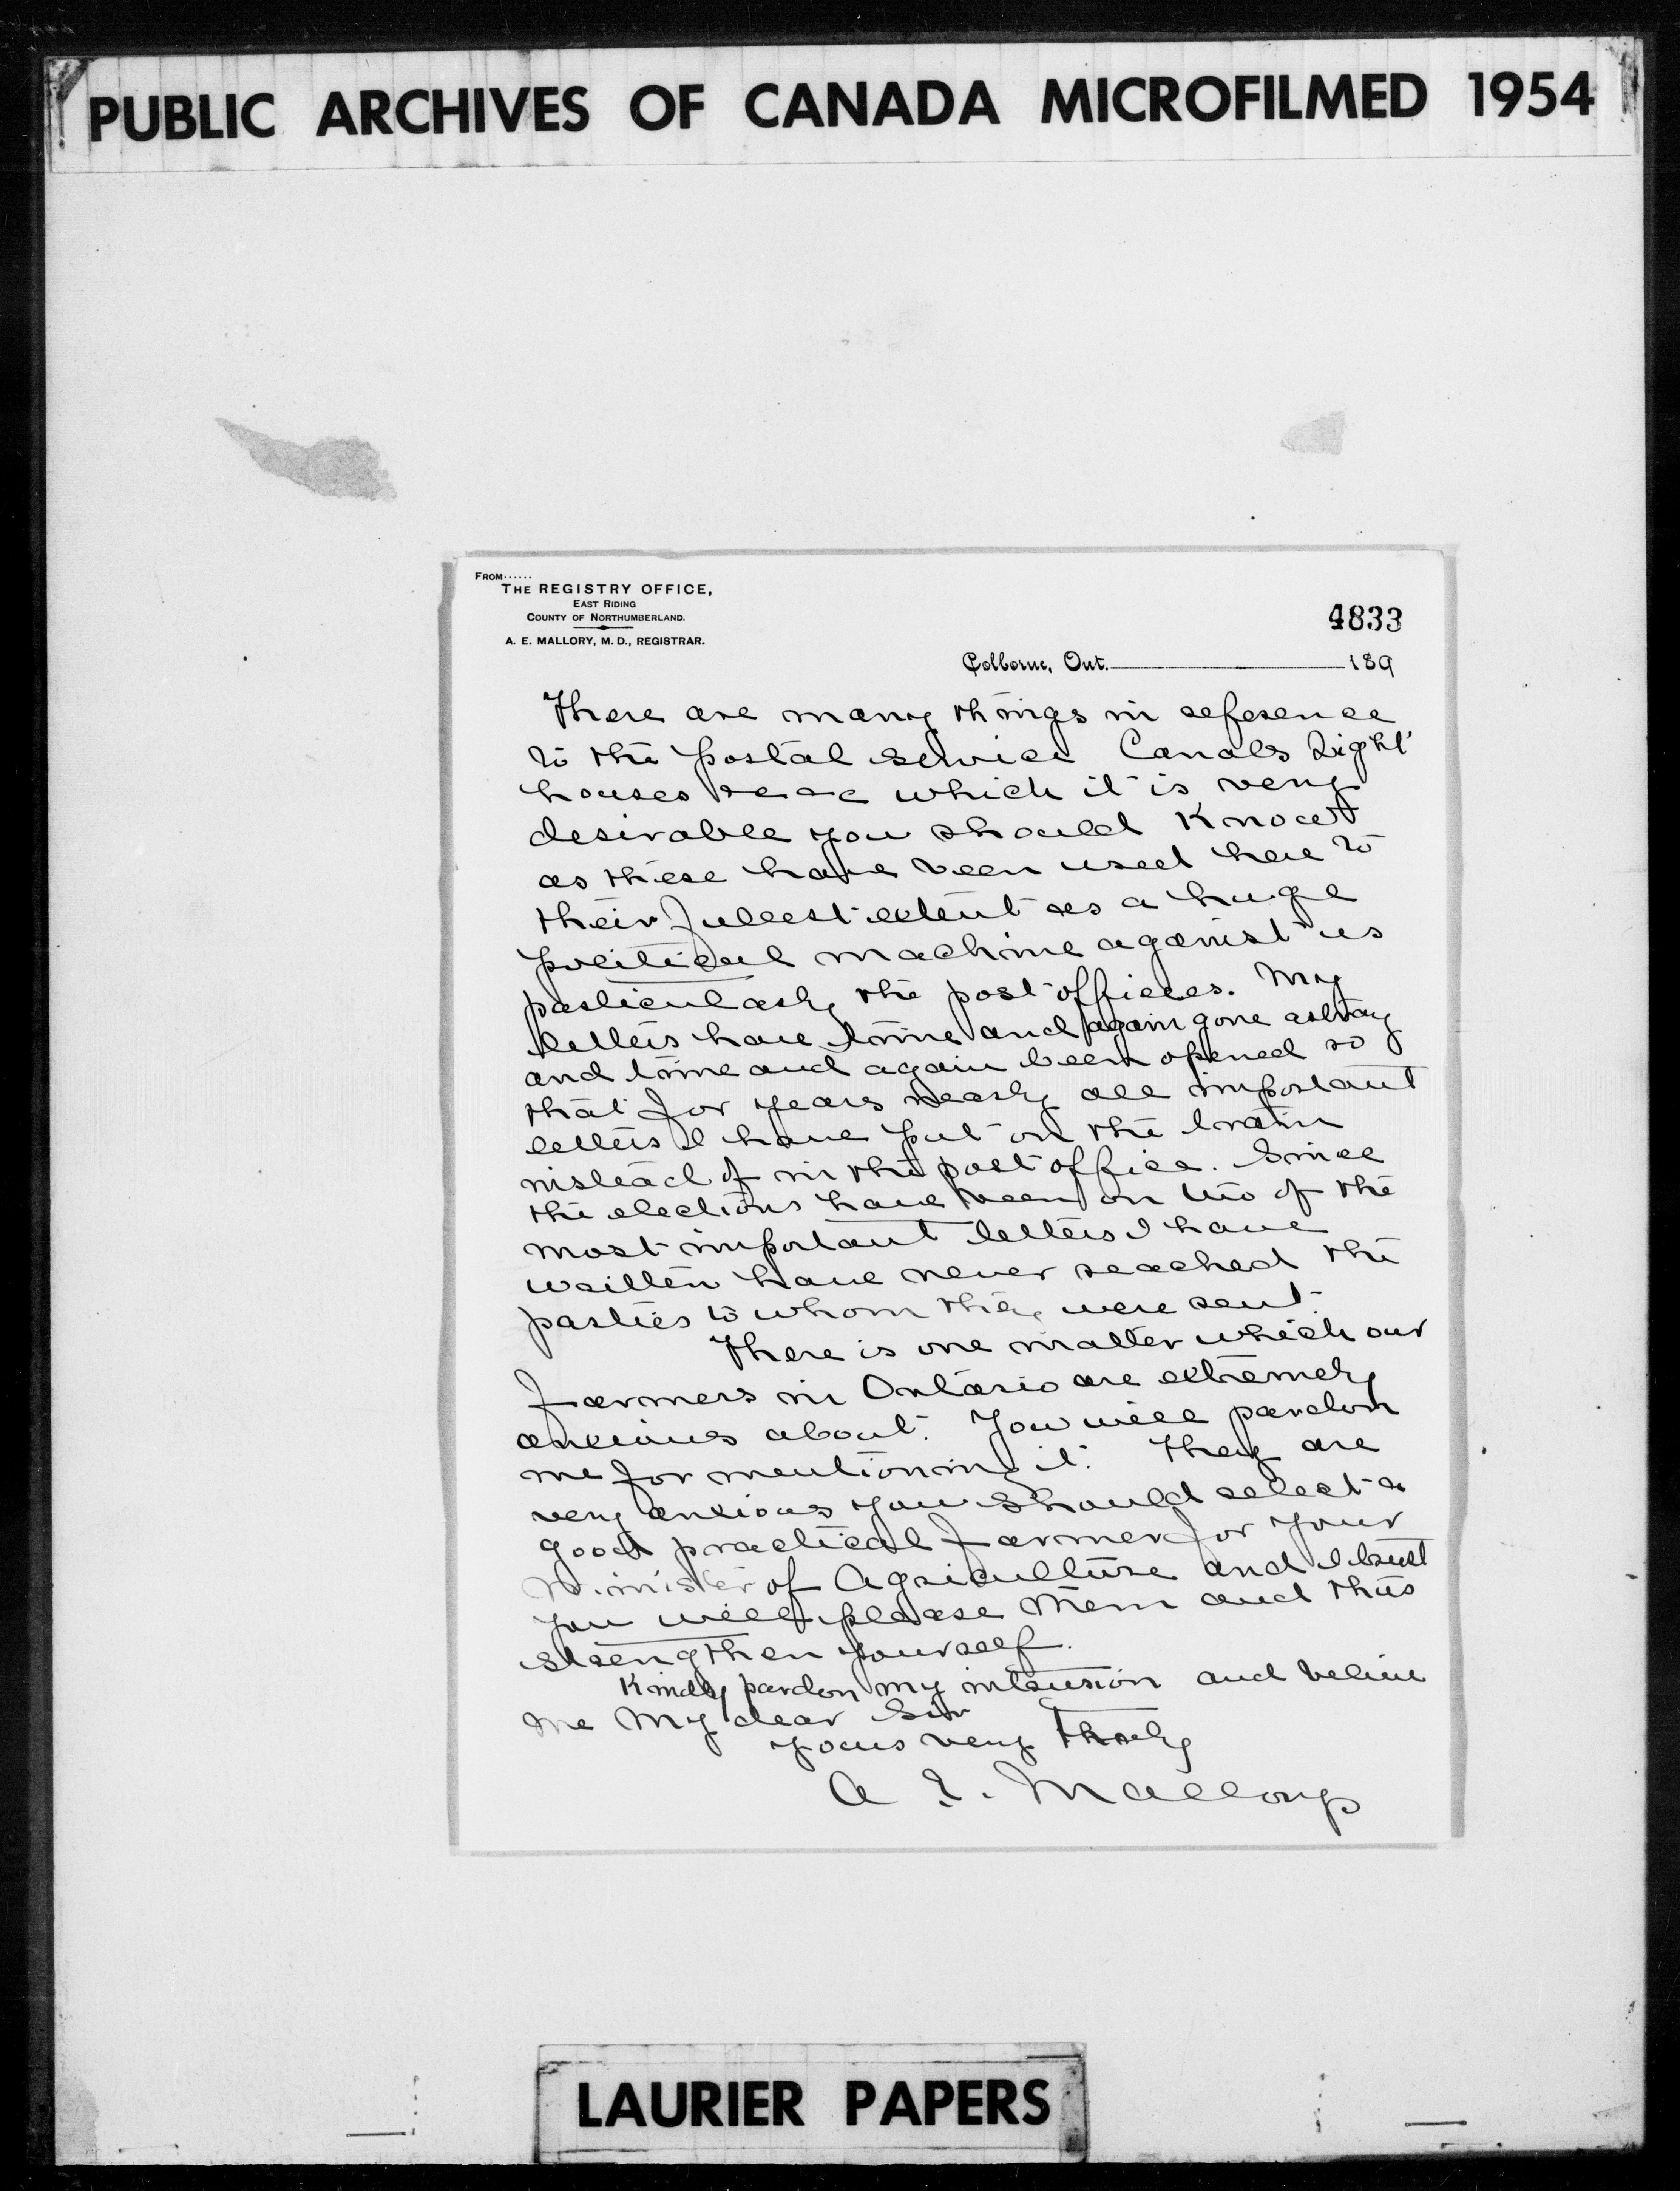 PUBLIC ARCHIVES OF CANADA MICROFILMED 1954
FROM......
THE REGISTRY OFFICE,
EAST RIDING
COUNTY OF NORTHUMBERLAND.
A. E. MALLORY, M. D., REGISTRAR.
4833
Colborne, Ont. 189
There are many things in reference
to the postal service Canals Light
houses which it is very
desirable you should know
as these have been used here to
their fullest extent as a huge
political machine against us
particularly the post offices. My
letters have time and again gone astray
and time and again been opened so
that for years nearly all important
letters I have put on the train
instead of in the post office. Since
the elections have been on two of the
most important letters I have
written have never reached the
parties to whom they were sent.
There is one matter which our
farmers in Ontario are extremely
anxious about. You will pardon
me for mentioning it. They are
very anxious you should select a
good practical farmer for your
Minister of Agriculture and I trust
you will please them and thus
strengthen yourself.
Kindly pardon my intrusion and believe
me My dear Sir
Yours very truly
A E. Mallory
LAURIER PAPERS